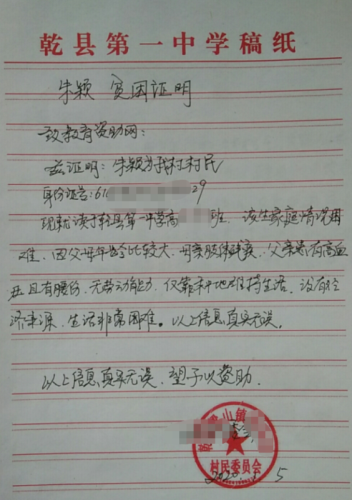 乾县第一中学稿纸
朱颖 贫困证明
致教育资助网:
兹证明:朱颖为我村村民
身份证号:61 29
现就读于乾县第一中学高 班 该生家庭情况困
难,因父母年龄比较大、母亲肢体残疾,父亲患有高血
压且有腰伤,无劳动能力,仅靠种地维持生活,没有经
济来源,生活非常困难。以上信息真实无误。
以上信息真实无误,望予以资助.
山镇
村民委员会
5